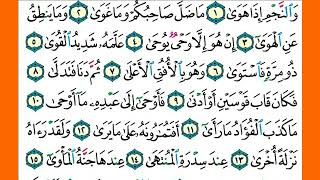 وَالنَّجْمِ إِذَا هَوَىٰ ١ مَا ضَلَّ صَاحِبُكُمْ وَمَا غَوَىٰ ٢ وَمَا يَنطِقُ
عَنِ الْهَوَىٰ ٣ إِنْ هُوَ إِلَّا وَحْيٌ يُوحَىٰ ٤ عَلَّمَهُ شَدِيدُ الْقُوَىٰ ٥
ذُو مِرَّةٍ فَاسْتَوَىٰ ٦ وَهُوَ بِالْأُفُقِ الْأَعْلَىٰ ٧ ثُمَّ دَنَا فَتَدَلَّىٰ ٨
فَكَانَ قَابَ قَوْسَيْنِ أَوْ أَدْنَىٰ ٩ فَأَوْحَىٰ إِلَىٰ عَبْدِهِ مَا أَوْحَىٰ ١٠
مَا كَذَبَ الْفُؤَادُ مَا رَأَىٰ ١١ أَفَتُمَارُونَهُ عَلَىٰ مَا يَرَىٰ ١٢ وَلَقَدْ رَآهُ
نَزْلَةً أُخْرَىٰ ١٣ عِندَ سِدْرَةِ الْمُنتَهَىٰ ١٤ عِندَهَا جَنَّةُ الْمَأْوَىٰ ١٥